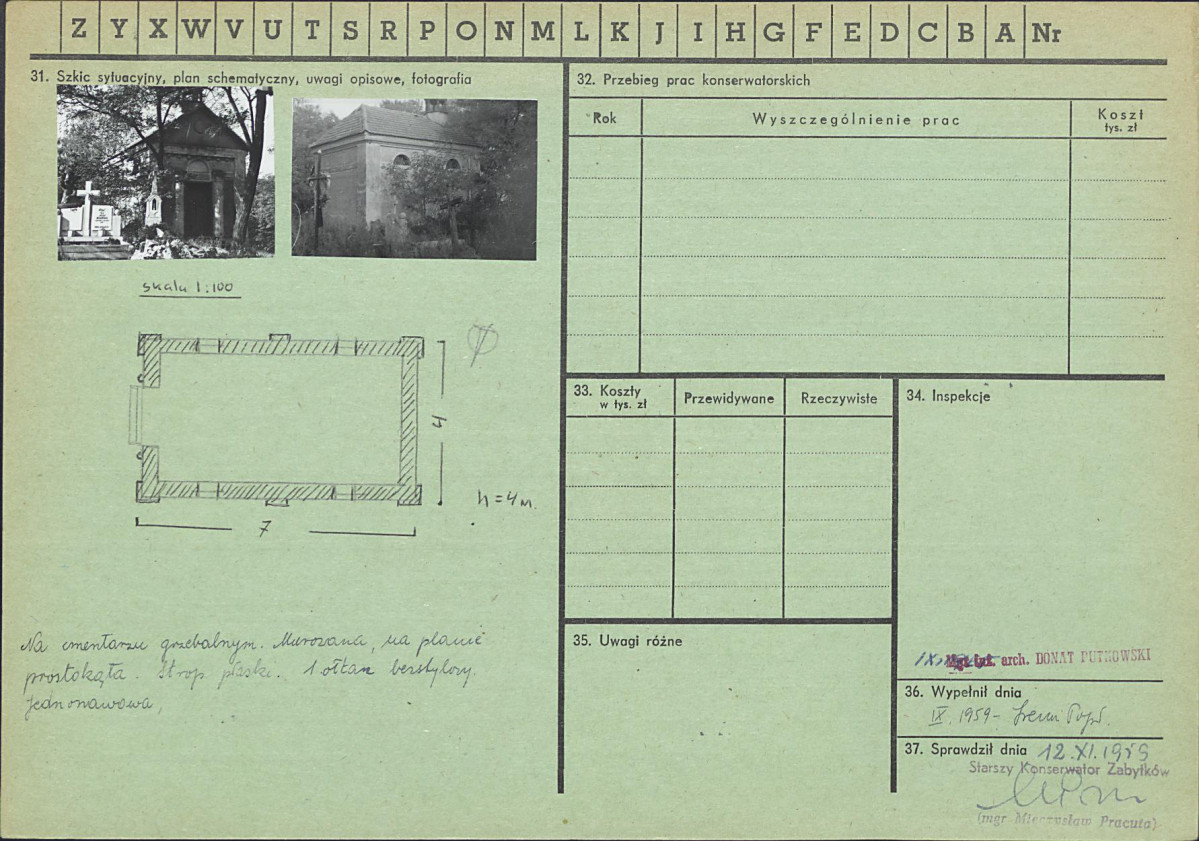 Z Y X W V U T S R P O N M L K J I H G F E D C B A Nr
31. Szkic sytuacyjny, plan schematyczny, uwagi opisowe, fotografia
skala 1:100
4
h = 4 m.
7
Na cmentarzu grzebalnym. Murowana, na planie
prostokąta. Strop płaski. 1 ołtarz bezstylowy.
Jednonawowa,
32. Przebieg prac konserwatorskich
Rok
Wyszczególnienie prac
Koszt
tys. zł
33. Koszty
w tys. zł
Przewidywane
Rzeczywiste
34. Inspekcje
Mgr inż. arch. DONAT PUTKOWSKI
35. Uwagi różne
36. Wypełnił dnia
IX. 1959 -
37. Sprawdził dnia 12.XI.1959
Starszy Konserwator Zabytków
(mgr Mieczysław Pracuta)